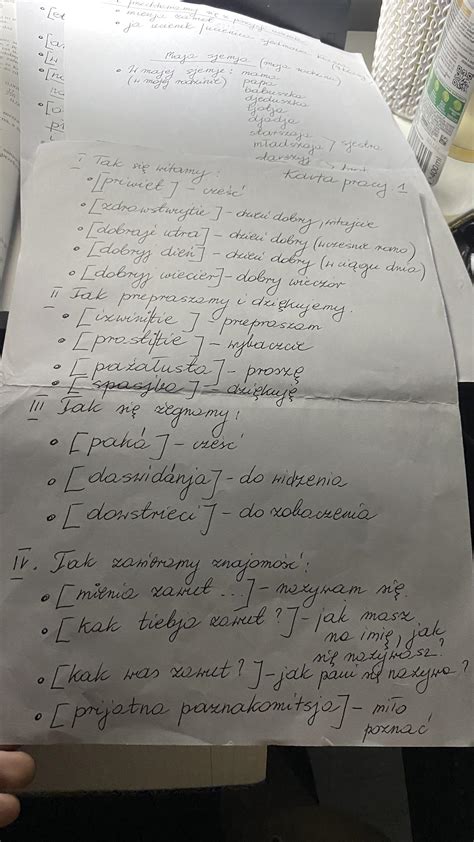 • miania zawut
• ja uczenik /
Maja siemja (moja rodzina)
• W majej siemje: mama
(w mojej rodzinie) papa
babuszka
djeduszka
tjotja
djadja
starszaja
mladszaja } sjestra
starszyj
Karta pracy 1
I Tak się witamy:
• [priwiet] – cześć
• [zdrawstwujtie] – dzień dobry, witajcie
• [dobraje utra] – dzień dobry (wcześnie rano)
• [dobryj dień] – dzień dobry (w ciągu dnia)
• [dobryj wiecier] – dobry wieczór
II Jak przepraszamy i dziękujemy.
• [izwinitie] – przepraszam
• [prastitie] – wybaczcie
• [pażałusta] – proszę
• [spasiba] – dziękuję
III Jak się żegnamy:
• [paká] – cześć
• [daswidánja] – do widzenia
• [dowstrieci] – do zobaczenia
IV. Jak zawieramy znajomość:
• [mienia zawut ...] – nazywam się.
• [kak tiebja zawut?] – jak masz
na imię, jak
się nazywasz?
• [kak was zawut?] – jak pani się nazywa?
• [prijatna paznakomitsja] – miło
poznać